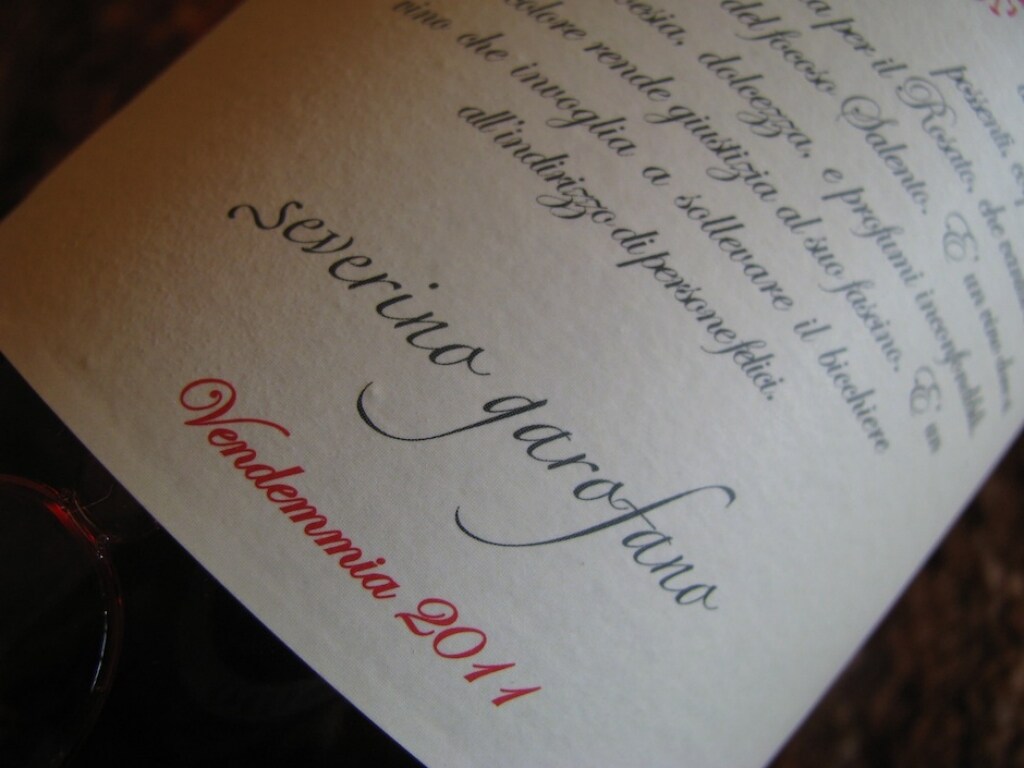 possenti, e
a per il Rosato, che
del focoso Salento. E' un vino
oesia, dolcezza, e profumi inconfondibili.
colore rende giustizia al suo fascino. E' un
vino che invoglia a sollevare il bicchiere
all'indirizzo di persone felici.
severino garofano
Vendemmia 2011